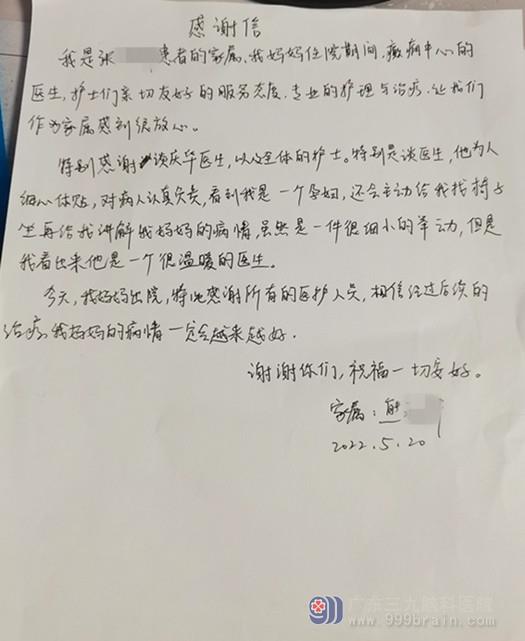 感谢信
我是张 患者的家属,我妈妈住院期间,癫痫中心的
医生,护士们亲切友好的服务态度,专业的护理与治疗,让我们
作为家属感到很放心。
特别感谢谈庆华医生,以及全体的护士。特别是谈医生,他为人
细心体贴,对病人认真负责,看到我是一个孕妇,还会主动给我找椅子
坐再给我讲解我妈妈的病情,虽然是一件很细小的举动,但是
我看出来他是一个很温暖的医生。
今天,我妈妈出院,特此感谢所有的医护人员,相信经过后续的
治疗,我妈妈的病情一定会越来越好.
谢谢你们,祝福一切安好。
家属:熊
2022.5.20
广东三九脑科医院
www.999brain.com